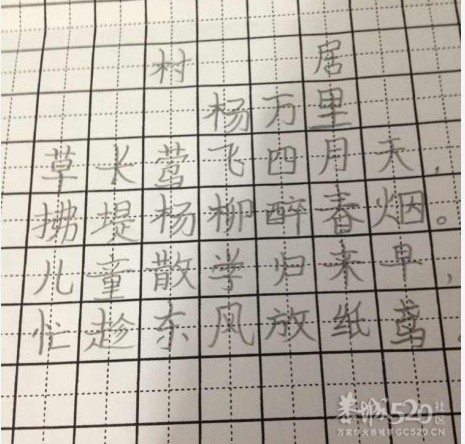 村居
杨万里
草长莺飞四月天，
拂堤杨柳醉春烟。
儿童散学归来早，
忙趁东风放纸鸢。
520社区
GC520.CN